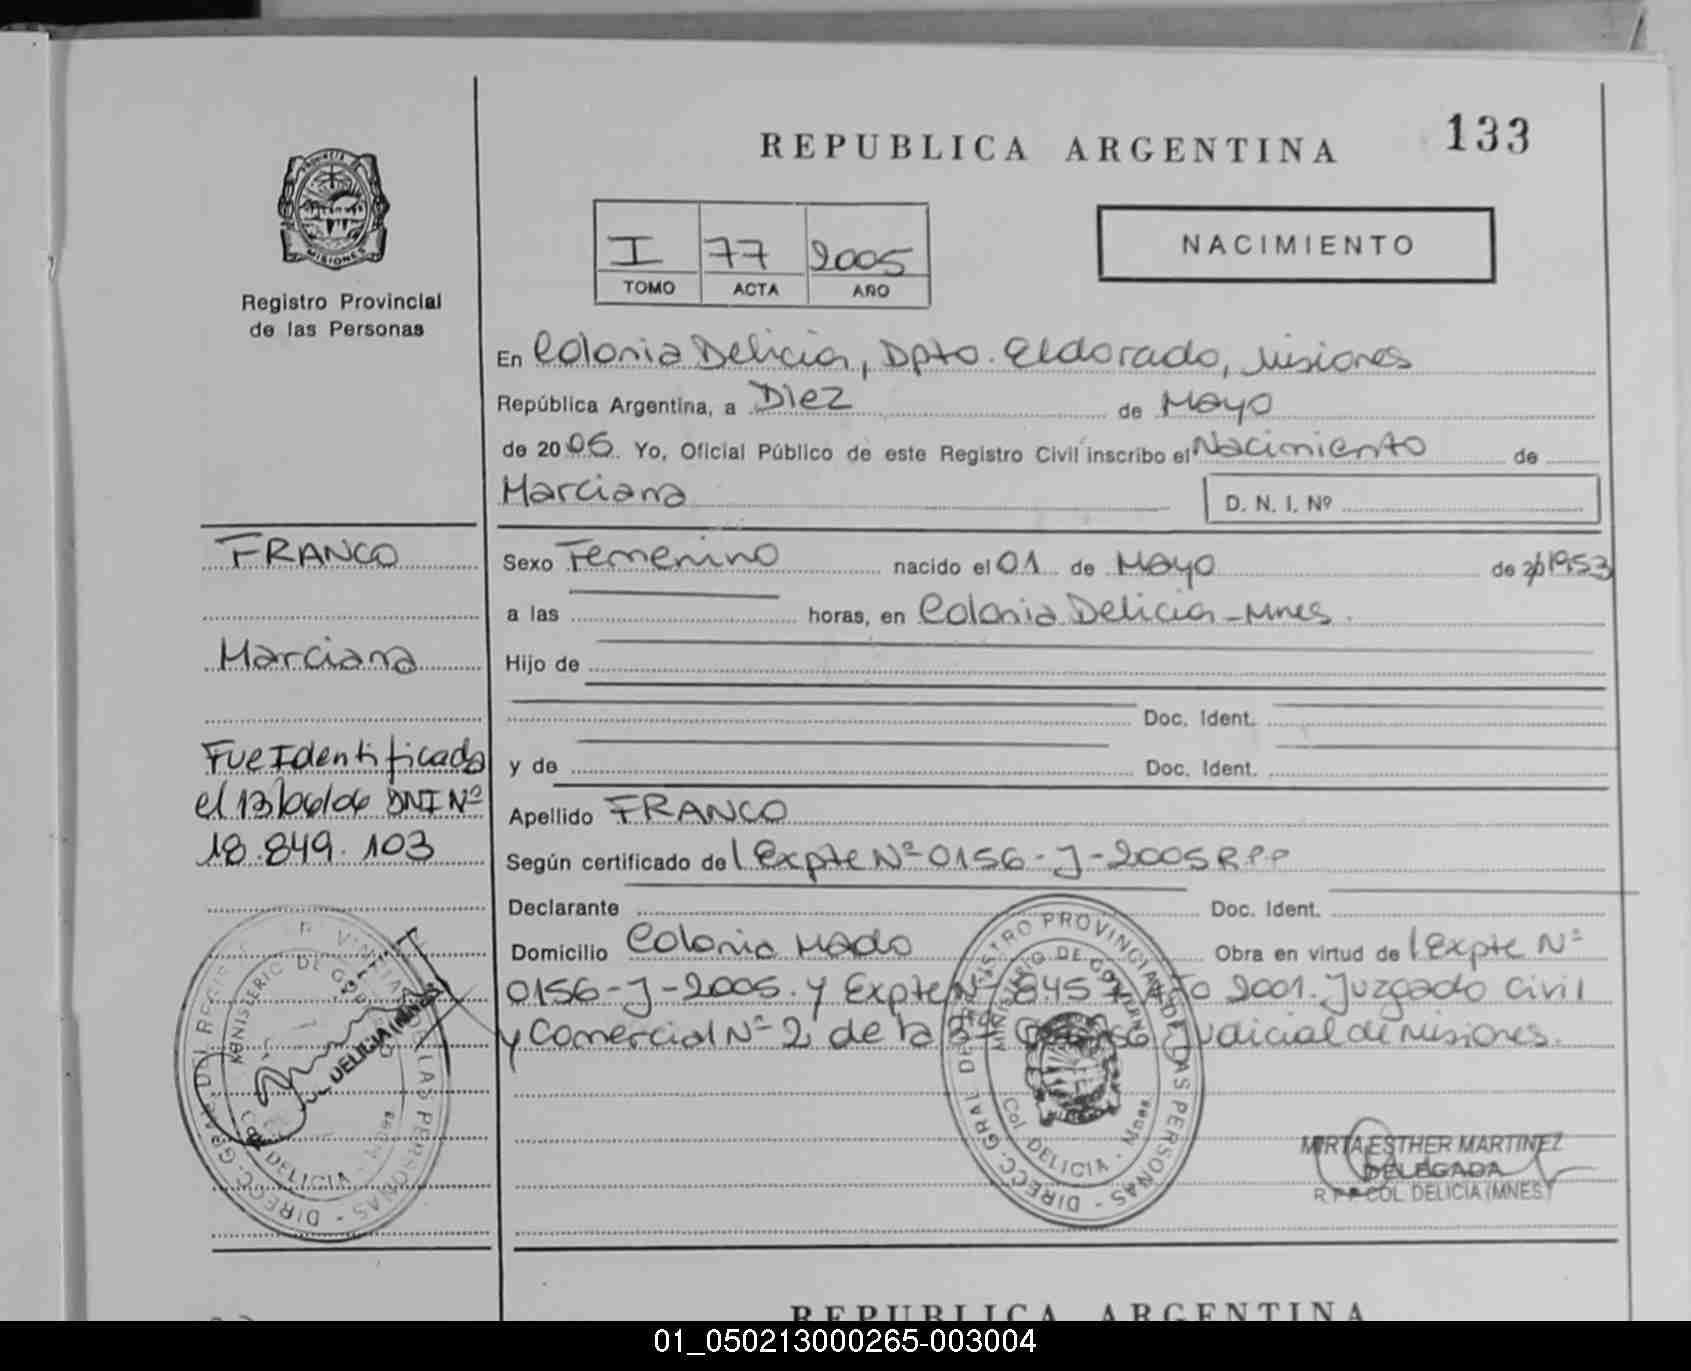 REPUBLICA ARGENTINA
133
PROVINCIA DE
MISIONES
Registro Provincial
de las Personas
I 77 2005
TOMO ACTA AÑO
NACIMIENTO
En Colonia Delicia, Dpto. Eldorado, Misiones
República Argentina, a Diez de Mayo
de 20 05. Yo, Oficial Público de este Registro Civil inscribo el Nacimiento de
Marciana D. N. I. Nº
FRANCO
Sexo Femenino nacido el 01 de Mayo de 1953
a las horas, en Colonia Delicia - Mnes.
Marciana
Hijo de
Doc. Ident.
Fue Identificada
el 13/06/06 DNI Nº
18.849.103
y de Doc. Ident.
Apellido FRANCO
Según certificado del Expte Nº 0156-J-2005 R P P
Declarante Doc. Ident.
Domicilio Colonia Mado Obra en virtud del Expte Nº
0156-J-2005. y Expte Nº 845 2001. Juzgado Civil
y Comercial Nº 2, de la 3ª Judicial de Misiones.
DIRECC. GRAL. DEL REGISTRO PROVINCIAL DE LAS PERSONAS
MINISTERIO DE GOBIERNO
Col. DELICIA - Mnes
DIRECC. GRAL. DEL REGISTRO PROVINCIAL DE LAS PERSONAS
MINISTERIO DE GOBIERNO
Col. DELICIA - Mnes
COL. DELICIA (MNES)
MIRTA ESTHER MARTINEZ
DELEGADA
R P P COL. DELICIA (MNES)
REPUBLICA ARGENTINA
01_050213000265-003004